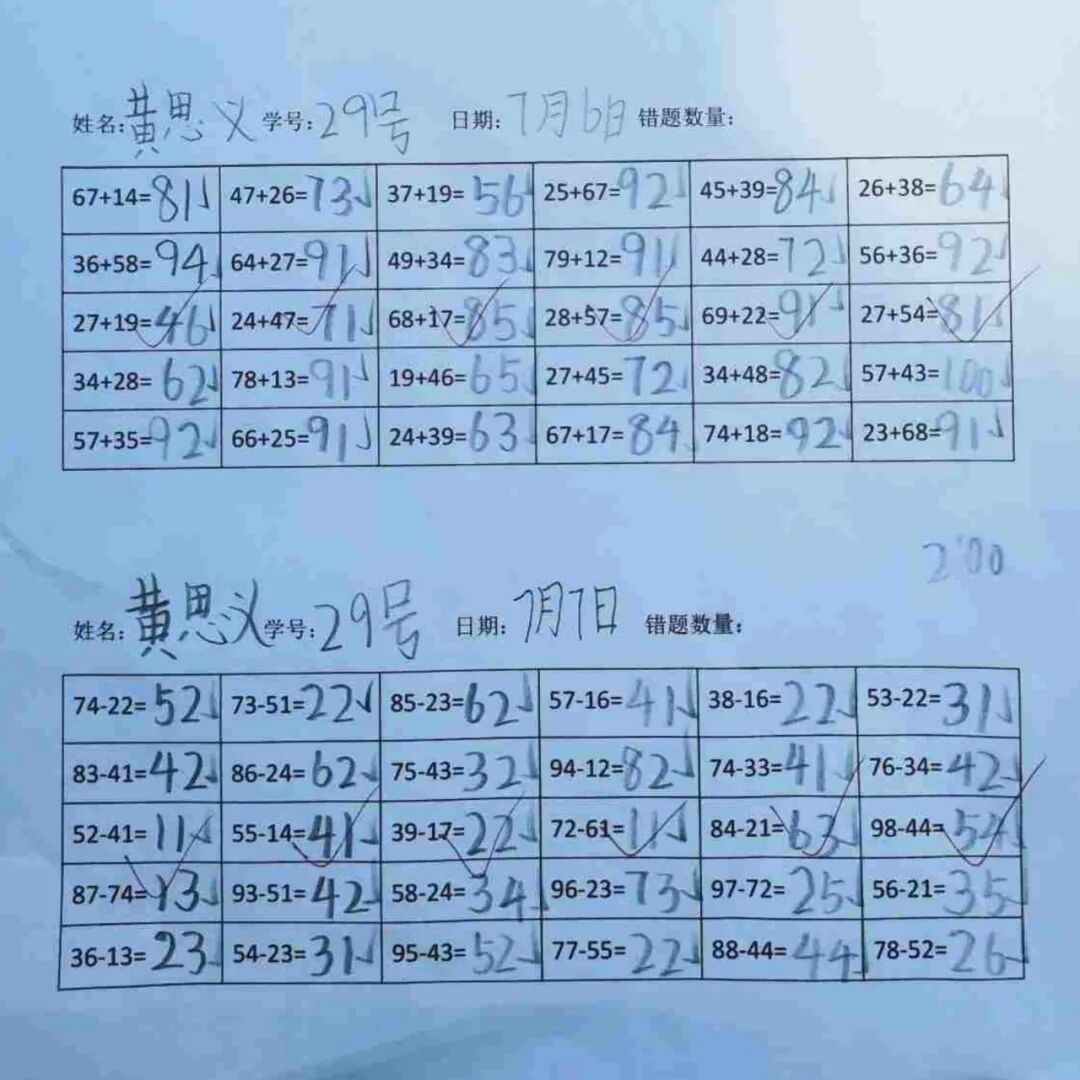 姓名:黄思义 学号:29号 日期:7月6日 错题数量:
67+14=81 47+26=73 37+19=56 25+67=92 45+39=84 26+38=64
36+58=94 64+27=91 49+34=83 79+12=91 44+28=72 56+36=92
27+19=46 24+47=71 68+17=85 28+57=85 69+22=91 27+54=81
34+28=62 78+13=91 19+46=65 27+45=72 34+48=82 57+43=100
57+35=92 66+25=91 24+39=63 67+17=84 74+18=92 23+68=91
2'00
姓名:黄思义 学号:29号 日期:7月7日 错题数量:
74-22=52 73-51=22 85-23=62 57-16=41 38-16=22 53-22=31
83-41=42 86-24=62 75-43=32 94-12=82 74-33=41 76-34=42
52-41=11 55-14=41 39-17=22 72-61=11 84-21=63 98-44=54
87-74=13 93-51=42 58-24=34 96-23=73 97-72=25 56-21=35
36-13=23 54-23=31 95-43=52 77-55=22 88-44=44 78-52=26